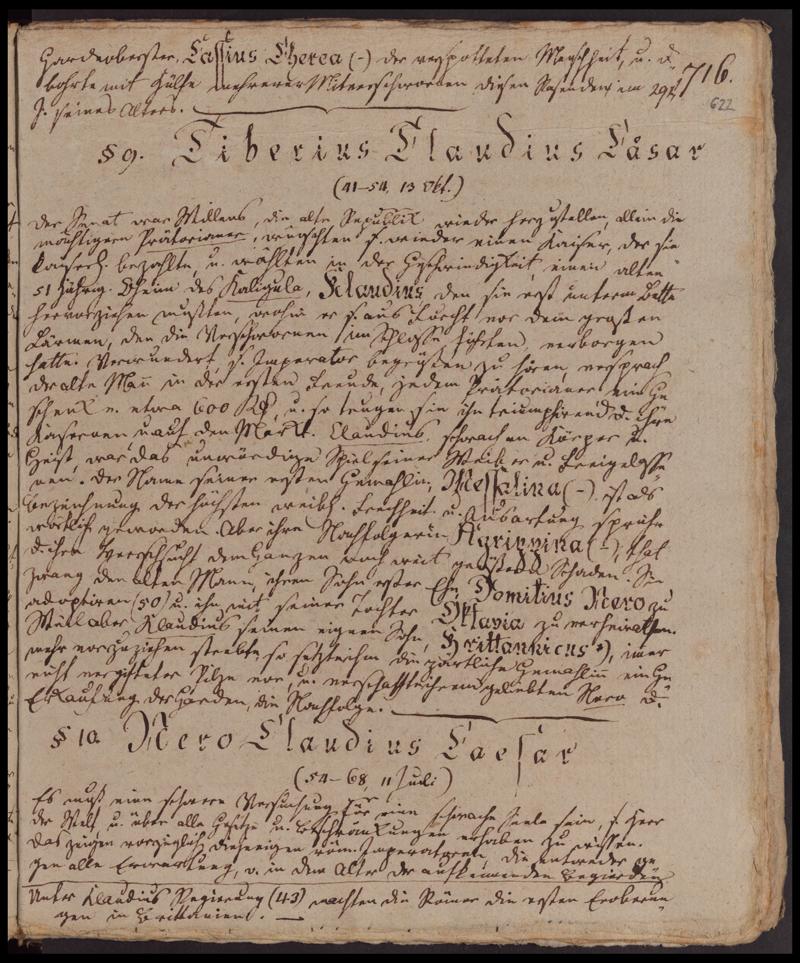 Gardeoberster, Cassius Cherea (-) der verspotteten Menschheit, u. d.
bohrte mit Hülfe mehrerer Mitverschwornen diesen Rasenden im 29st
716.
622
J. seines Alters.
§ 9. Tiberius Claudius Cäsar
(41-54, 13 Okt.)
Der Senat war Willens, die alte Republik wieder herzustellen, allein die
mächtigern Prätorianer, wünschten s. wieder einen Kaiser, der sie
bezahlte, u. wählten in der Geschwindigkeit einen alten
51 jährig. Oheim des Kaligula, Klaudius den sie erst unterm Bette
hervorziehen mußten, wohin er s. aus Furcht vor dem großen
Lärmen, den die Verschwornen im Schlosse führten, verborgen
hatte. Verwundert, s. Imperator begrüßen zu hören, versprach
der alte Mann in der ersten Freude, jedem Prätorianer ein Ge
schenk v. etwa 600 u. so trugen sie ihn triumphirend d. ihre
Kasernen u. auf den Markt. Claudius, schwach an Körper u.
Geist, war das unwürdige Spiel seiner Weiber u. Freigelasse
nen. Der Name seiner ersten Gemahlin, Messalina (-) ist als
Bezeichnung der höchsten weibl. Frechheit u. Ausartung sprüch
wörtlich geworden. Aber ihre Nachfolgerin Agrippina (-), that
d. ihre Herrschsucht dem Ganzen noch weit größern Schaden. Sie
zwang den alten Mann, ihren Sohn erster Ehe Domitius Nero zu
adoptiren (50) u. ihn mit seiner Tochter Oktavia zu verheirathen.
Weil aber Klaudius seinen eignen Sohn, Brittannicus *), immer
mehr vorzuziehen strebte, so setzte ihm die zärtliche Gemahlin ein Ge
richt vergifteter Pilze vor, u. verschaffte ihrem geliebten Nero d.
Erkaufung der Garden, die Nachfolge.
§ 10. Nero Claudius Caesar
(54-68, 11 Juli)
Es muß eine schwere Versuchung für eine schwache Seele sein, s. Herr
der Welt, u. über alle Gesetze u. Beschränkungen erhaben zu wissen.
Das zeigen vorzüglich diejenigen röm. Imperatoren, die entweder ge
gen alle Erwartung, o. in dem Alter der aufkeimenden Begierden
Unter Klaudius Regierung (43) machten die Römer die ersten Eroberun
gen in Brittanien.